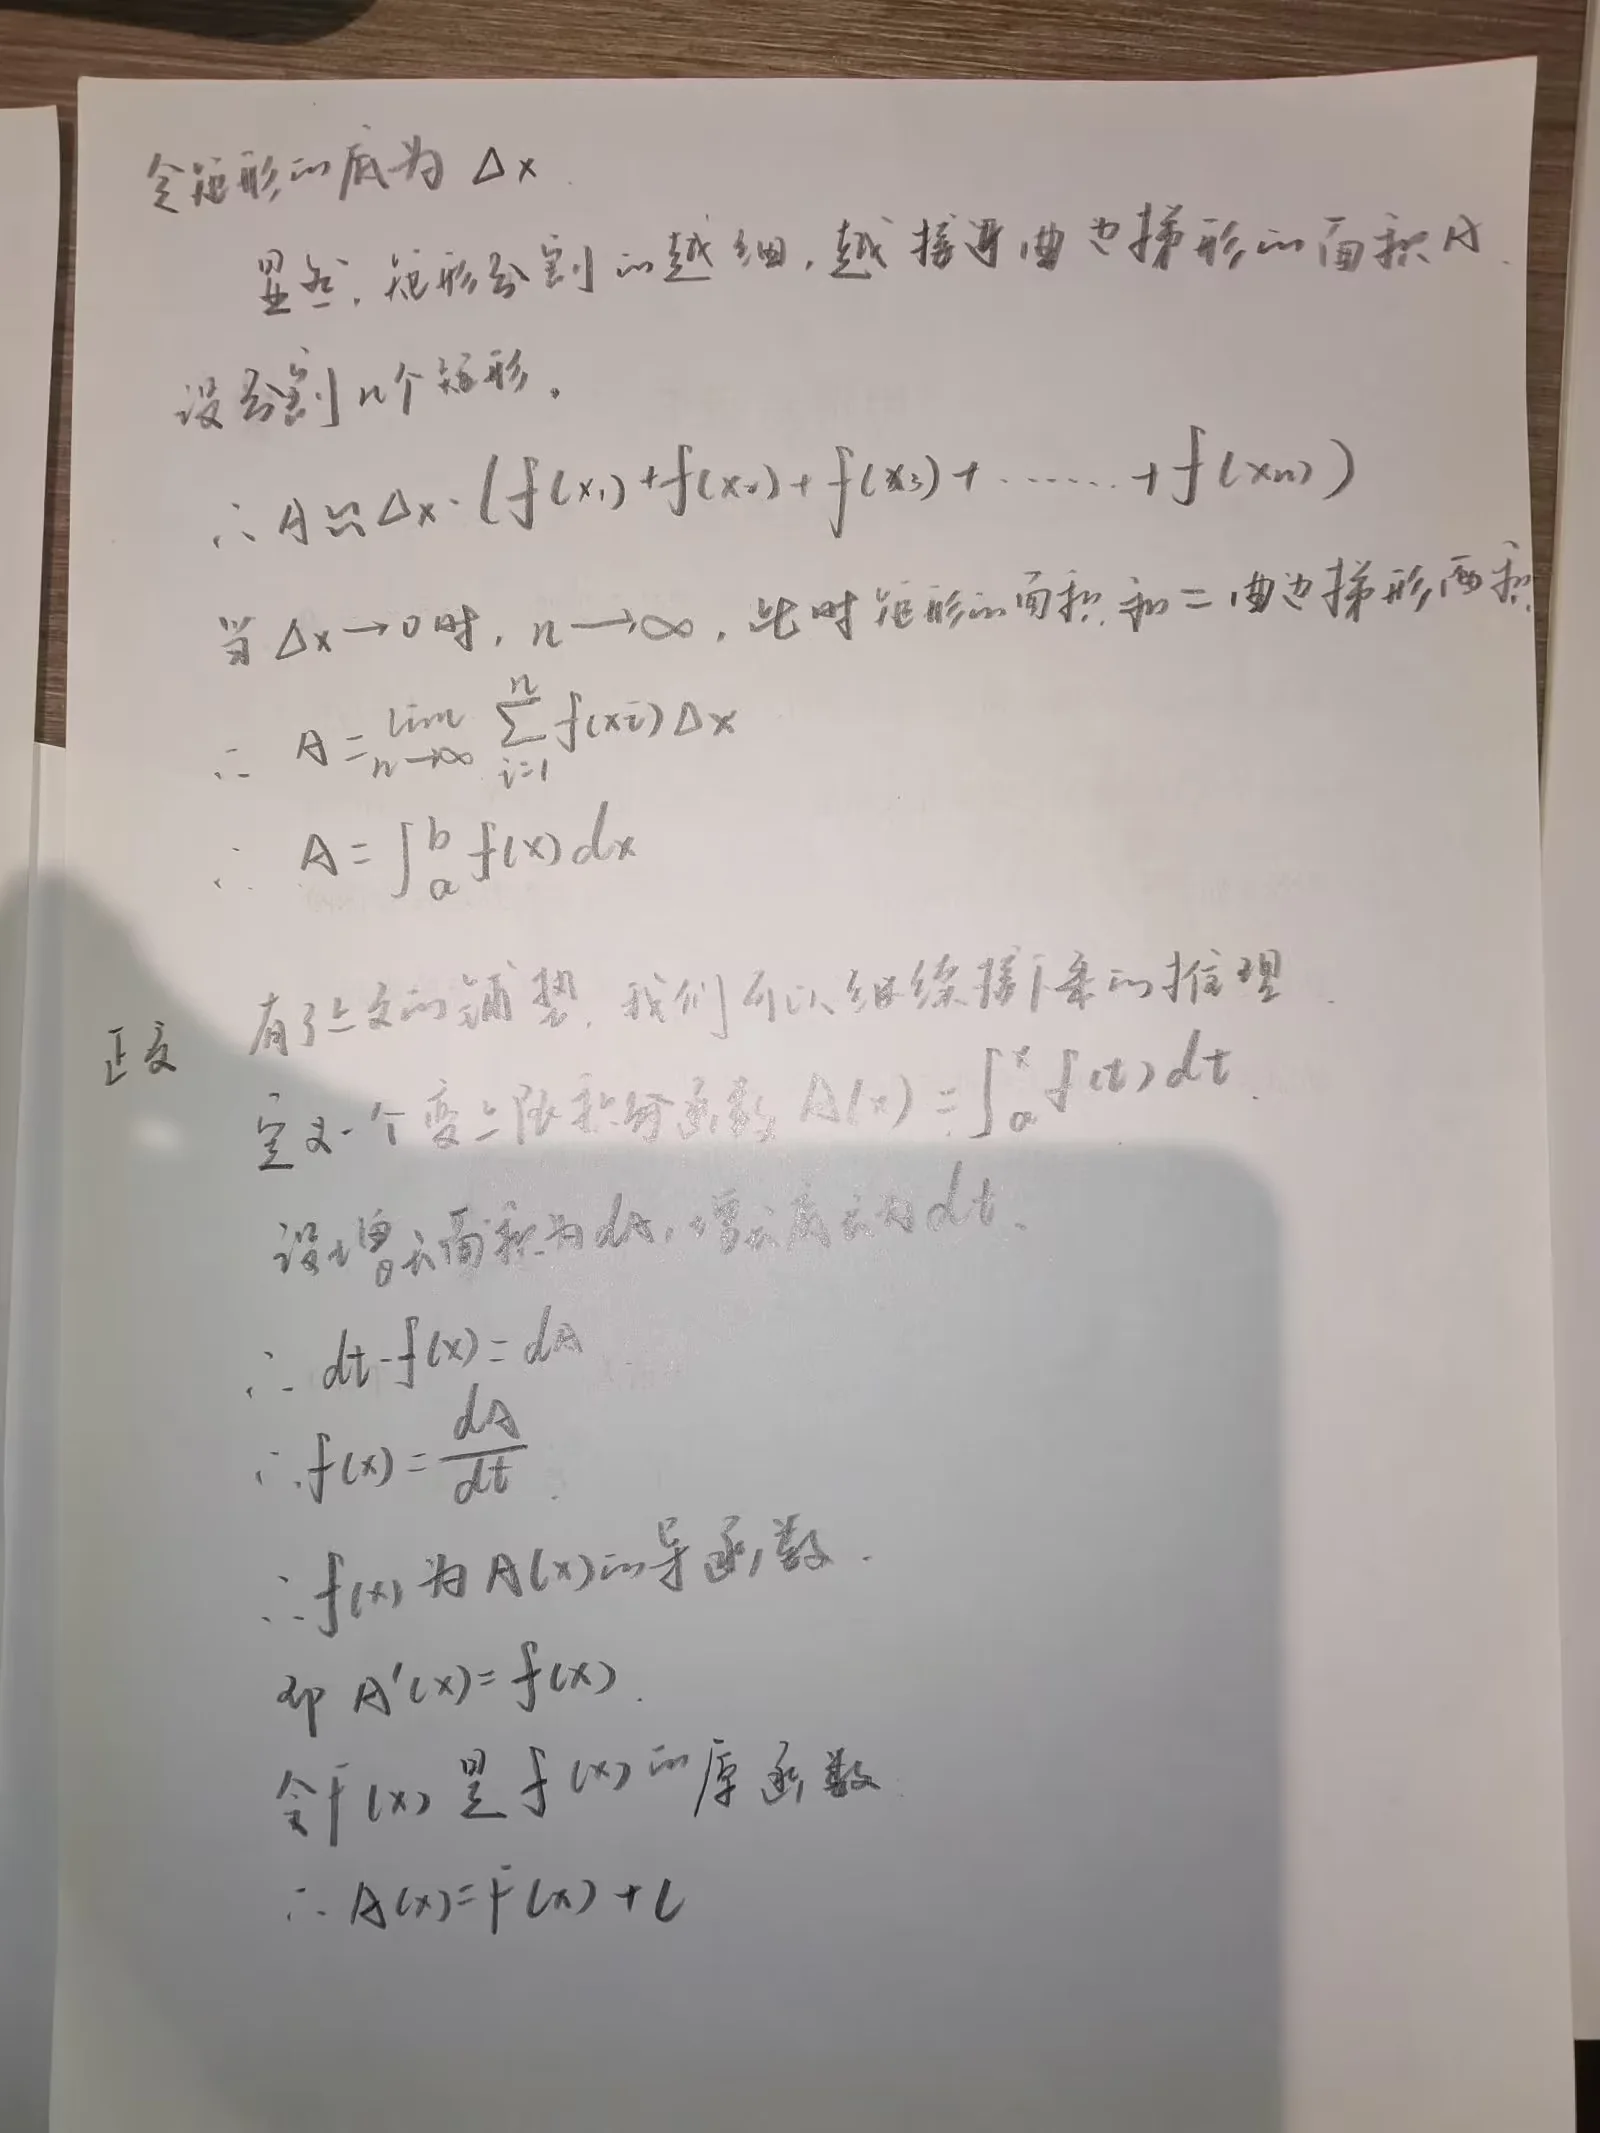 令矩形的底为 Δx.
显然，矩形分割的越细，越接近曲边梯形的面积A.
设分割n个矩形。
∴ A≌Δx·(f(x₁)+f(x₂)+f(x₃)+······+f(xn))
当Δx→0时，n→∞，此时矩形的面积和=曲边梯形面积.
∴ A=lim n→∞ ∑ i=1 n f(xi)Δx
∴ A=∫ₐᵇ f(x)dx
有了上文的铺垫，我们可以继续接下来的推理.
正文
定义一个变上限积分函数 A(x)=∫ₐˣ f(t)dt.
设增加面积为dA，增加底长为dt.
∴ dt·f(x)=dA
∴ f(x)=dA/dt.
∴ f(x)为A(x)的导函数.
即 A'(x)=f(x).
令F(x)是f(x)的原函数.
∴ A(x)=F(x)+C